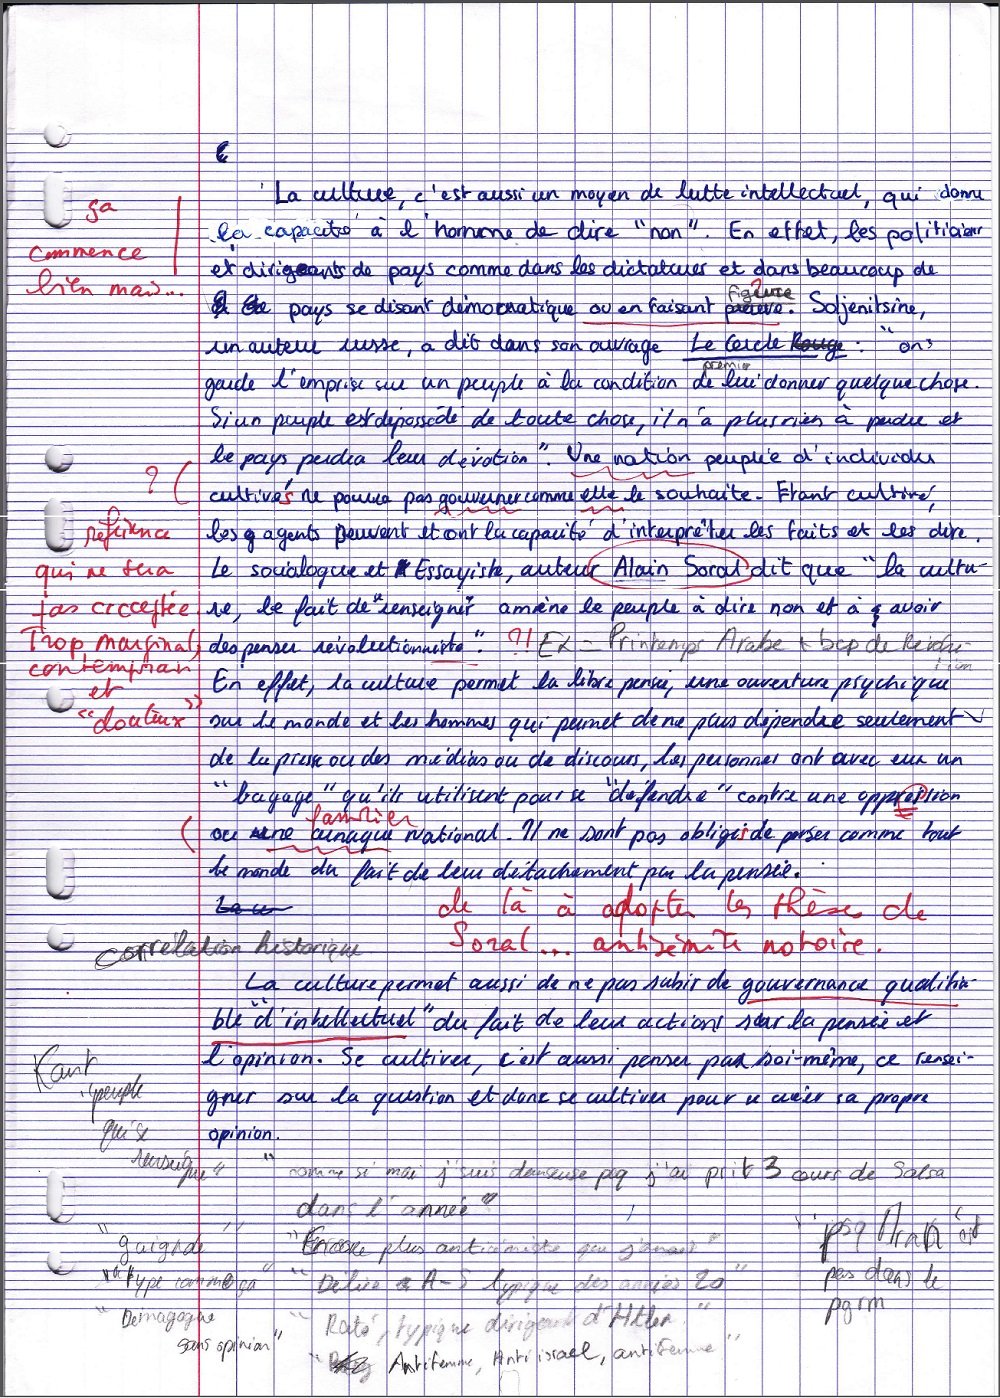 La culture, c'est aussi un moyen de lutte intellectuel, qui donne
la capacité à l'homme de dire "non". En effet, les politicien
et dirigeants de pays comme dans les dictatures et dans beaucoup de
pays se disant démocratique ou en faisant preuve. Soljenitsine,
figure
un auteur russe, a dit dans son ouvrage Le Cercle Rouge : "on
premier
garde l'emprise sur un peuple à la condition de lui donner quelque chose.
Si un peuple est dépossédé de toute chose, il n'a plus rien à perdre et
le pays perdra leur dévotion". Une nation peuplée d'individu
cultivés ne pourra pas gouverner comme elle le souhaite. Etant cultivé,
les agents peuvent et ont la capacité d'interpréter les faits et les dire.
Le socialogue et Essayiste, auteur Alain Soral dit que "la cultu-
re, le fait de "renseigner" amène le peuple à dire non et à avoir
des penser révolutionniste". ?!! Ex = Printemps Arabe + bcp de
En effet, la culture permet la libre pensée, une ouverture psychique
sur le monde et les hommes qui permet de ne plus dépendre seulement
de la presse ou des médias ou de discours, les personnes ont avec eux un
"bagage" qu'ils utilisent pour se "défendre" contre une oppression
familier
ou une arnaque national. Il ne sont pas obligés de penser comme tout
le monde du fait de leur détachement par la pensée.
ça
commence
bien mais...
?
référence
qui ne sera
pas acceptée
Trop marginal,
contemporain
et
"douteux"
de là à adopter les thèses de
Soral... antisémite notoire.
corrélation historique
La culture permet aussi de ne pas subir de gouvernance qualifia-
ble "d'intellectuel" du fait de leur actions sur la pensée et
l'opinion. Se cultiver, c'est aussi penser par soi-même, ce rensei-
gner sur la question et donc se cultiver pour se créer sa propre
opinion.
Kant
"peuple
qui se
renseigne"
"comme si moi j'suis danseuse pcq j'ai prit 3 cours de Salsa
dans l'année"
"Encore plus que j'avais"
"Délire A-S typique des années 20"
"Raté, typique dirigeant d'Hitler"
" Antifemme, Anti israel, antifemme"
"guignole"
"type comme ça"
"Démagogue
sans opinion"
"psq était
pas dans le
pgrm